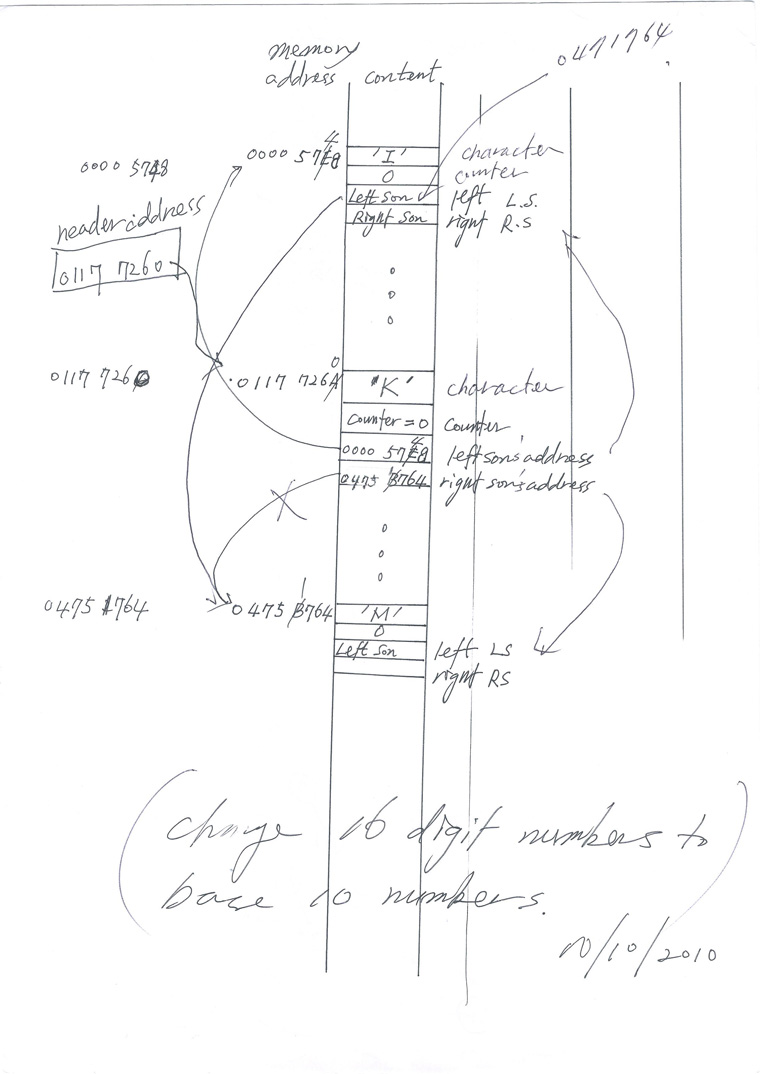 memory
address content
0471764
4
0000 57E8 'I' character
0000 5748
0 counter
Left Son left L.S.
Right Son right R.S
header address
0117 7260
0
0117 7260 0117 726A "K" character
counter = 0 counter
4
0000 57E8 left son's address
0475 B764 right son's address
1
0475 1764 0475 B764 'M'
0
Left Son left LS
right RS
(change 16 digit numbers to
base 10 numbers.)
10/10/2010